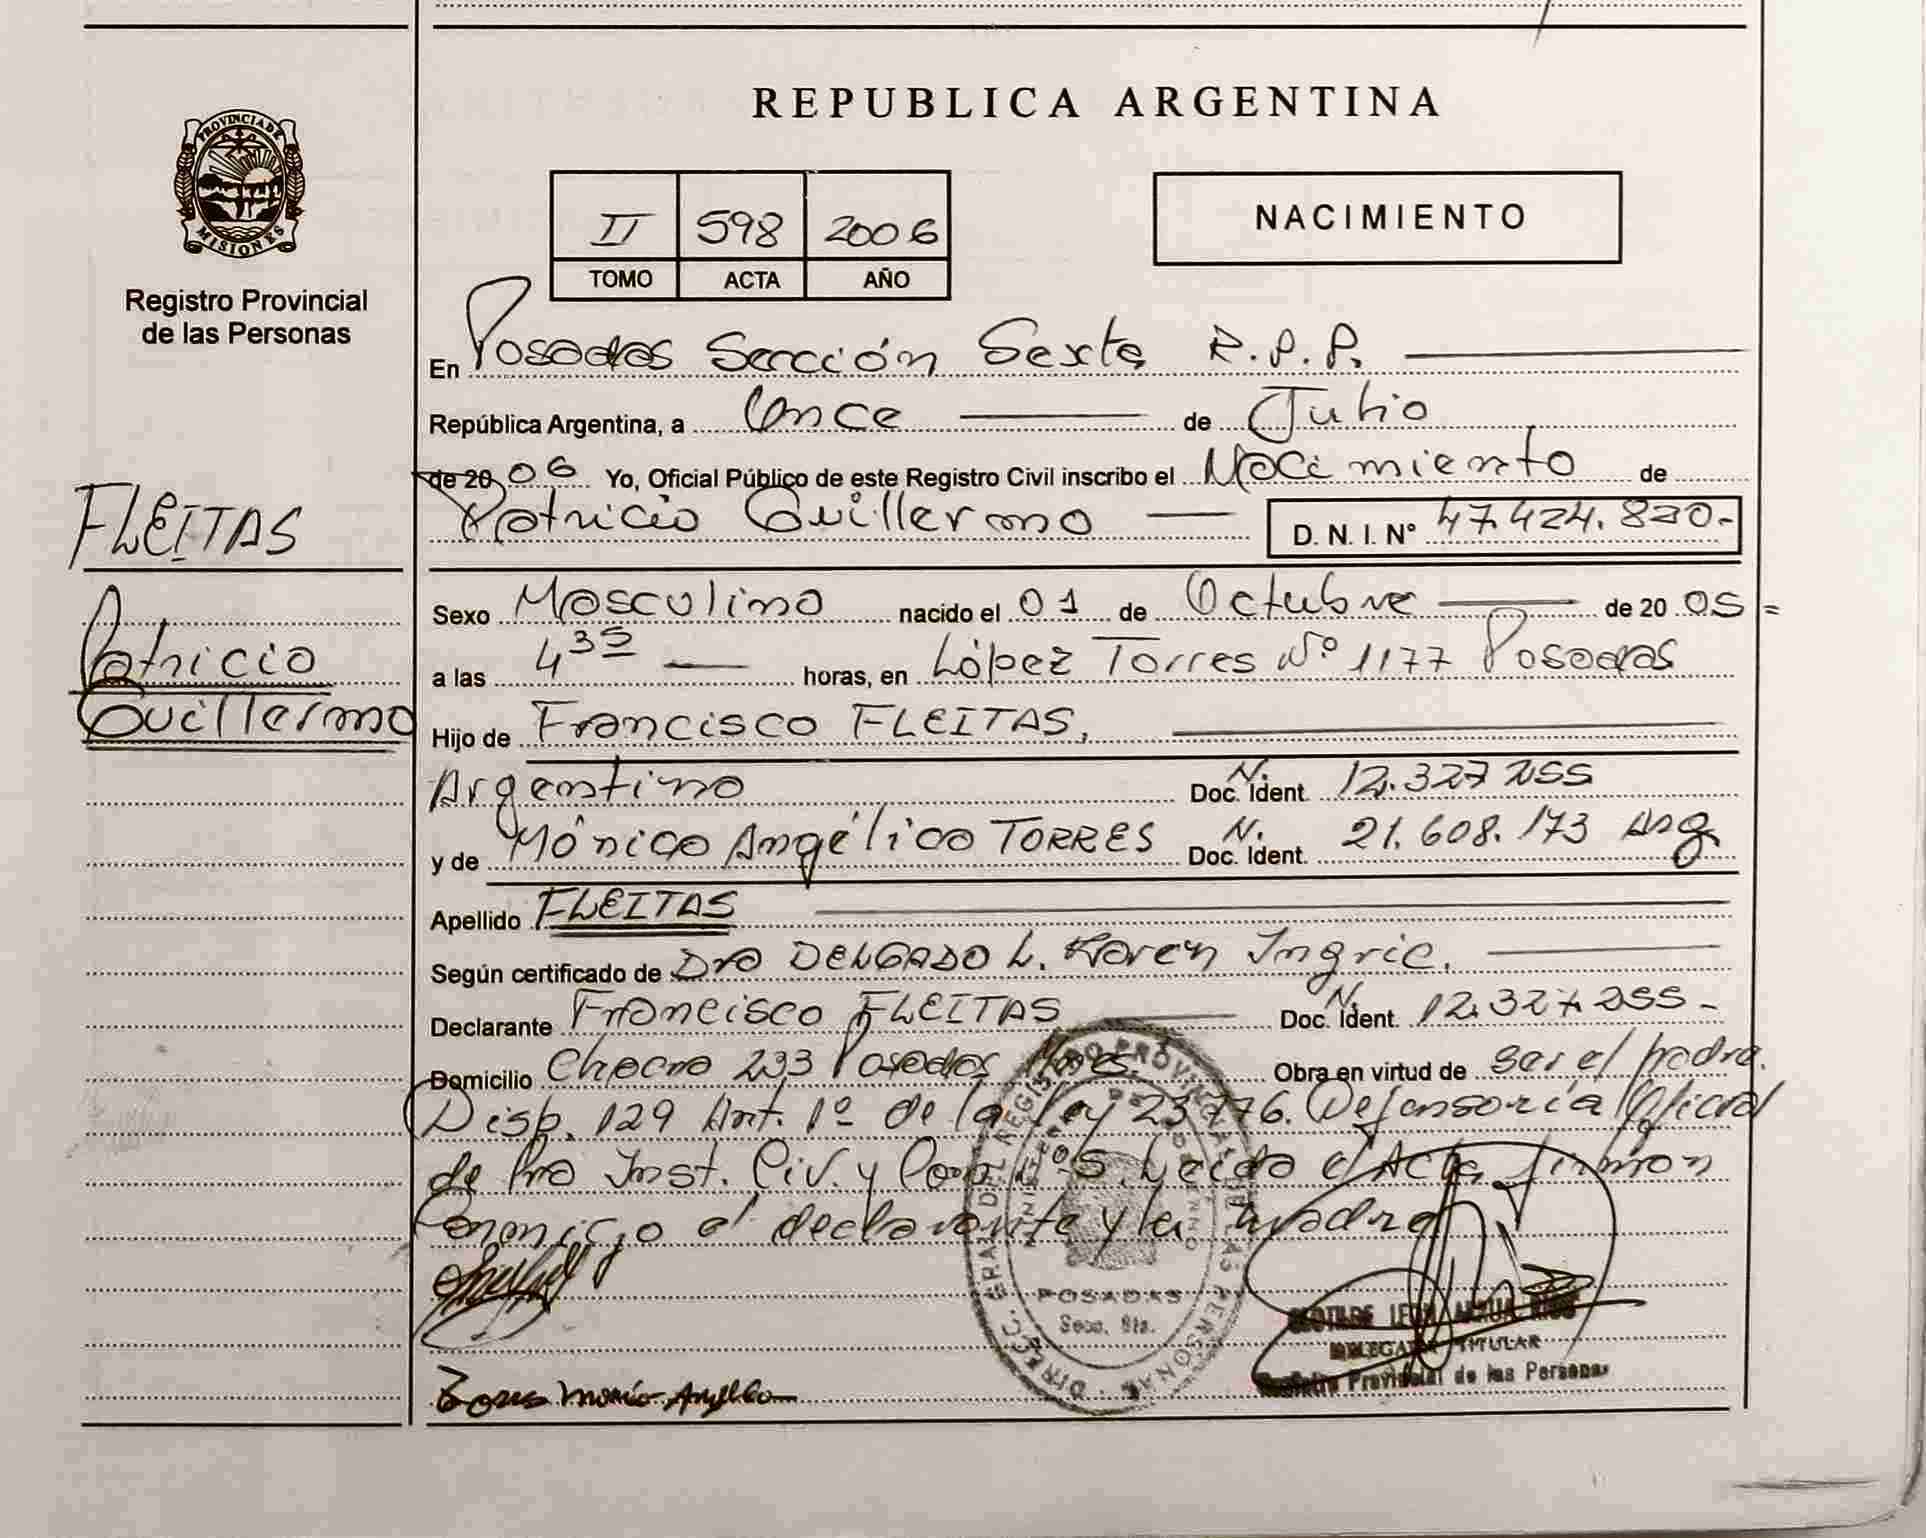 REPUBLICA ARGENTINA
PROVINCIA DE MISIONES
Registro Provincial
de las Personas
II 598 2006
TOMO ACTA AÑO
NACIMIENTO
En Posadas Sección Sexta R.P.P.
República Argentina, a Once de Julio
de 20 06 Yo, Oficial Público de este Registro Civil inscribo el Nacimiento de
Patricio Guillermo D. N. I. Nº 47.424.820.-
FLEITAS
Patricio
Guillermo
Sexo Masculino nacido el 01 de Octubre de 20 05 =
a las 4 35 horas, en López Torres Nº 1177 Posadas
Hijo de Francisco FLEITAS,
Argentino N. Doc. Ident. 12.327.255
y de Mónica Angélica TORRES N. Doc. Ident. 21.608.173 Arg.
Apellido FLEITAS
Según certificado de Dra DELGADO L. Karen Ingric.
Declarante Francisco FLEITAS N. Doc. Ident. 12.327.255-
Domicilio Chacra 233 Posadas Mnes. Obra en virtud de ser el padre.
Disp. 129 Art. 1º de la ley 23776. Defensoría Oficial
de Pra Inst. Civ. y Com. Nº5. Leída el Acta, firman
Conmigo el declarante y la madre
DIREC. GRAL. DEL REGISTRO PROVINCIAL DE LAS PERSONAS
MINISTERIO DE GOBIERNO
POSADAS
Secc. 6ta.
DELEGADA TITULAR
Registro Provincial de las Personas